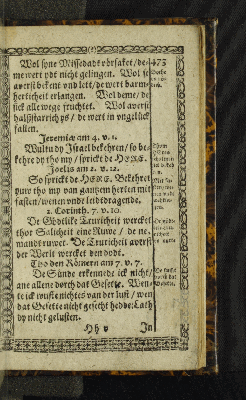 Wol syne Missedadt vörsaket / de-
me wert ydt nicht gelingen. Wol se
averst bekent vnd lett / de wert barm-
herticheit erlangen. Wol deme / de
sick alle wege fruchtet. Wol averst
halßstarrich ys / de wert in vngelück
fallen.
Jeremiæ am 4. v. 1.
Wultu dy Jsrael bekehren / so be-
kehre dy tho my / sprickt de HERE.
Joelis am 2. v. 12.
So sprickt de HERE. Bekehret
yuw tho my van gantzem herten mit
fasten / wenen vnde leidtdragende.
2. Corinth. 7. v. 10.
De Gödtlike Truricheit wercket
thor Salicheit eine Ruwe / de ne-
mandt ruwet. De Truricheit averst
der Werlt wercket den dodt.
Tho den Römern am 7. v. 7.
De Sünde erkennede ick nicht /
ane allene dorch dat Gesette. Wen-
te ick wuste nichtes van der lust / wen
dat Gesette nicht gesecht hedde: Lath
dy nicht gelüsten.
Hh v
Jn
473